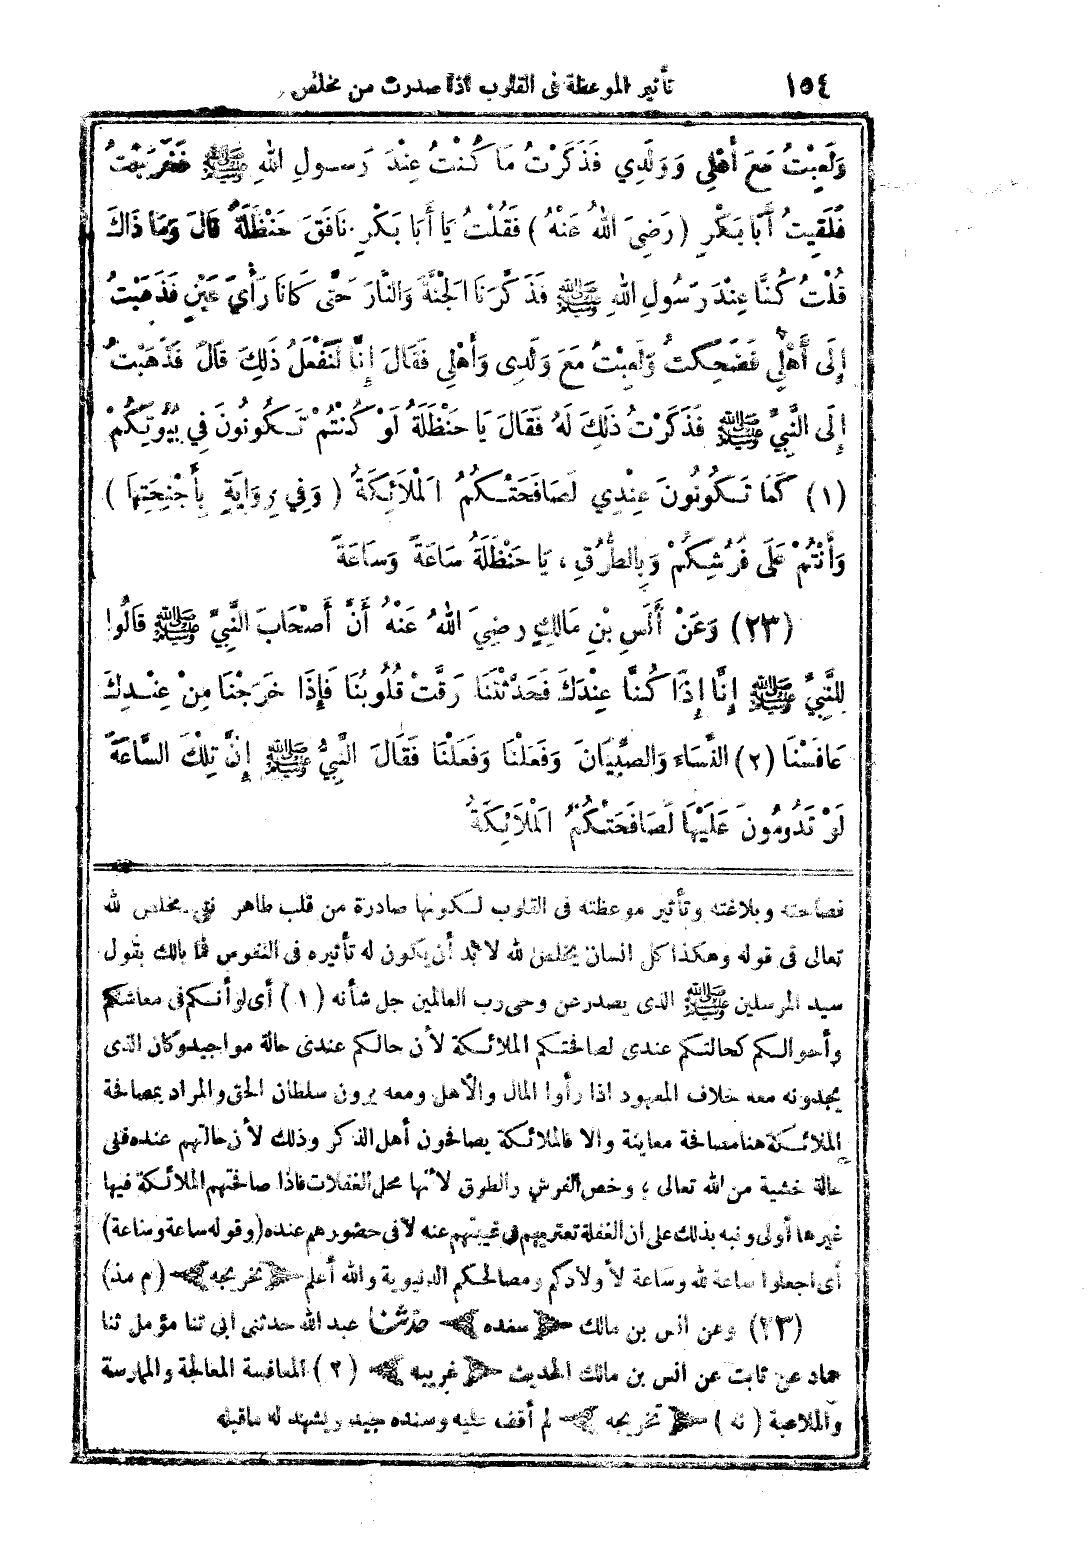 ١٥٤ تأثير الموعظة فى القلوب اذا صدرت من مخلص
وَلَعِبْتُ مَعَ أَهْلِي وَوَلَدِي فَذَكَرْتُ مَا كُنْتُ عِنْدَ رَسُولِ اللهِ ﷺ فَخَرَجْتُ
فَلَقِيتُ أَبَا بَكْرٍ (رَضِيَ اللهُ عَنْهُ) فَقُلْتُ يَا أَبَا بَكْرٍ نَافَقَ حَنْظَلَةُ قَالَ وَمَا ذَاكَ
قُلْتُ كُنَّا عِنْدَ رَسُولِ اللهِ ﷺ فَذَكَّرَنَا الْجَنَّةَ وَالنَّارَ حَتَّى كَانَا رَأْيَ عَيْنٍ فَذَهَبْتُ
إِلَى أَهْلِي فَضَحِكْتُ وَلَعِبْتُ مَعَ وَلَدِى وَأَهْلِي فَقَالَ إِنَّا لَنَفْعَلُ ذَلِكَ قَالَ فَذَهَبْتُ
إِلَى النَّبِيِّ ﷺ فَذَكَرْتُ ذَلِكَ لَهُ فَقَالَ يَا حَنْظَلَةُ لَوْ كُنْتُمْ تَكُونُونَ فِي بُيُوتِكُمْ
(١) كَمَا تَكُونُونَ عِنْدِي لَصَافَحَتْكُمُ الْمَلَائِكَةُ (وَفِي رِوَايَةٍ بِأَجْنِحَتِهَا)
وَأَنْتُمْ عَلَى فُرُشِكُمْ وَبِالطُّرُقِ، يَا حَنْظَلَةُ سَاعَةً وَسَاعَةً
(٢٣) وَعَنْ أَنَسِ بْنِ مَالِكٍ رضِيَ اللهُ عَنْهُ أَنَّ أَصْحَابَ النَّبِيِّ ﷺ قَالُوا
لِلنَّبِيِّ ﷺ إِنَّا إِذَا كُنَّا عِنْدَكَ فَحَدَّثْتَنَا رَقَّتْ قُلُوبُنَا فَإِذَا خَرَجْنَا مِنْ عِنْدِكَ
عَافَسْنَا (٢) النِّسَاءَ وَالصِّبْيَانَ وَفَعَلْنَا وَفَعَلْنَا فَقَالَ النَّبِيُّ ﷺ إِنَّ تِلْكَ السَّاعَةَ
لَوْ تَدُومُونَ عَلَيْهَا لَصَافَحَتْكُمُ الْمَلَائِكَةُ
فصاحته وبلاغته وتأثير موعظته فى القلوب لكونها صادرة من قلب طاهر نقى مخلص لله
تعالى فى قوله وهكذا كل انسان يخلص لله لا بد أن يكون له تأثيره فى النفوس فما بالك بقول
سيد المرسلين ﷺ الذى يصدر عن وحى رب العالمين جل شأنه (١) أى لو أنكم فى معاشكم
وأحوالكم كحالتكم عندى لصافحتكم الملائكة لأن حالكم عندى حالة مواجيد وكان الذى
يجدونه معه خلاف المعهود اذا رأوا المال والأهل ومعه يرون سلطان الحق والمراد بمصافحة
الملائكة هنا مصافحة معاينة والا فالملائكة يصافحون أهل الذكر وذلك لأن حالتهم عنده فى
حالة خشية من الله تعالى ؛ وخص الفرش والطرق لأنها محل الغفلات فاذا صافحتهم الملائكة فيها
غيرها أولى ونبه بذلك على ان الغفلة تعتريهم فى غيبتهم عنه لا فى حضورهم عنده (وقوله ساعة وساعة)
أى اجعلوا ساعة لله وساعة لأولادكم ومصالحكم الدنيوية والله أعلم ﴿تخريجه﴾ (م مذ)
(٢٣) وعن انس بن مالك ﴿سنده﴾ حدثنا عبد الله حدثنى ابى ثنا مؤمل ثنا
حماد عن ثابت عن انس بن مالك الحديث ﴿غريبه﴾ (٢) المعافسة المعالجة والممارسة
والملاعبة (نه) ﴿تخريجه﴾ لم أقف عليه وسنده جيد ويشهد له ماقبله